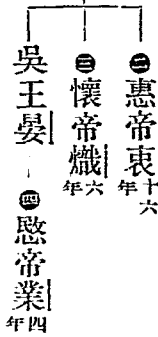 ㊁惠帝衷十六年
㊂懷帝熾六年
吳王晏
㊃愍帝業四年